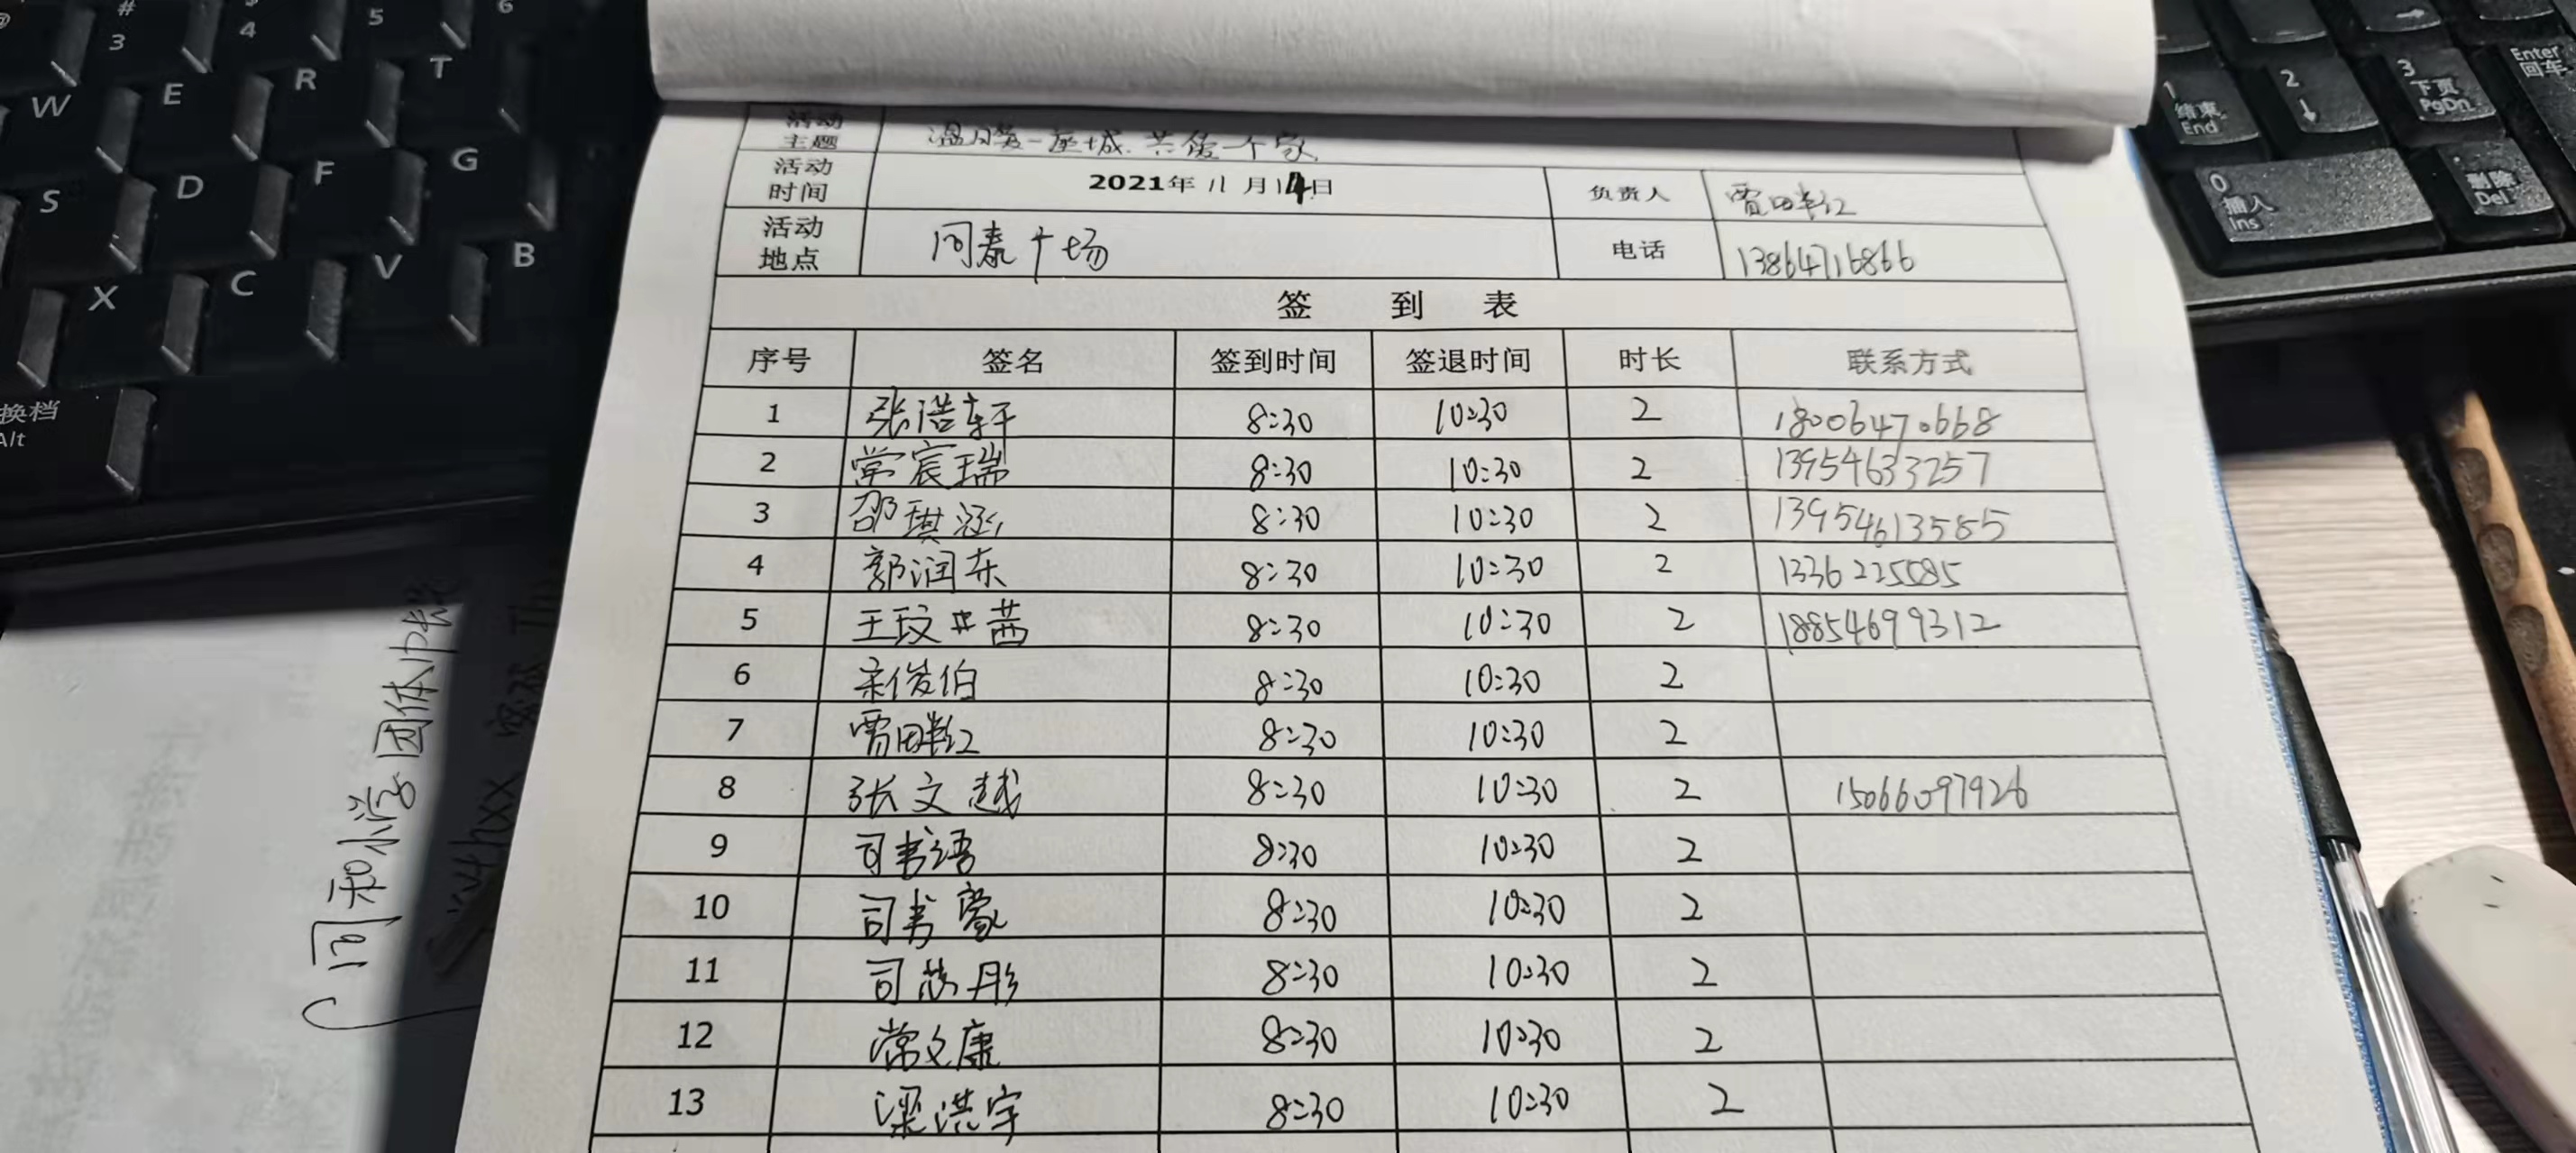 活动主题 温暖一座城 共爱一个家
活动时间 2021年 11 月 14日 负责人
活动地点 同泰广场 电话 13864716866
签 到 表
序号 签名 签到时间 签退时间 时长 联系方式
1 张浩轩 8:30 10:30 2 18006470668
2 常宸瑞 8:30 10:30 2 13954633257
3 邵琪涵 8:30 10:30 2 13954613585
4 郭润东 8:30 10:30 2
5 王玟茜 8:30 10:30 2 18854699312
6 宋俊伯 8:30 10:30 2
7 8:30 10:30 2
8 张文越 8:30 10:30 2 15066097926
9 司书语 8:30 10:30 2
10 司书豪 8:30 10:30 2
11 司芯彤 8:30 10:30 2
12 常文康 8:30 10:30 2
13 梁洪宇 8:30 10:30 2
同和小学团体
# 3
4
5
6
W E R T
S D F G
X C V B
换档 Alt
1 结束 End
2 ↓
3 下页 PgDn
Enter 回车
0 插入 Ins
删除 Del